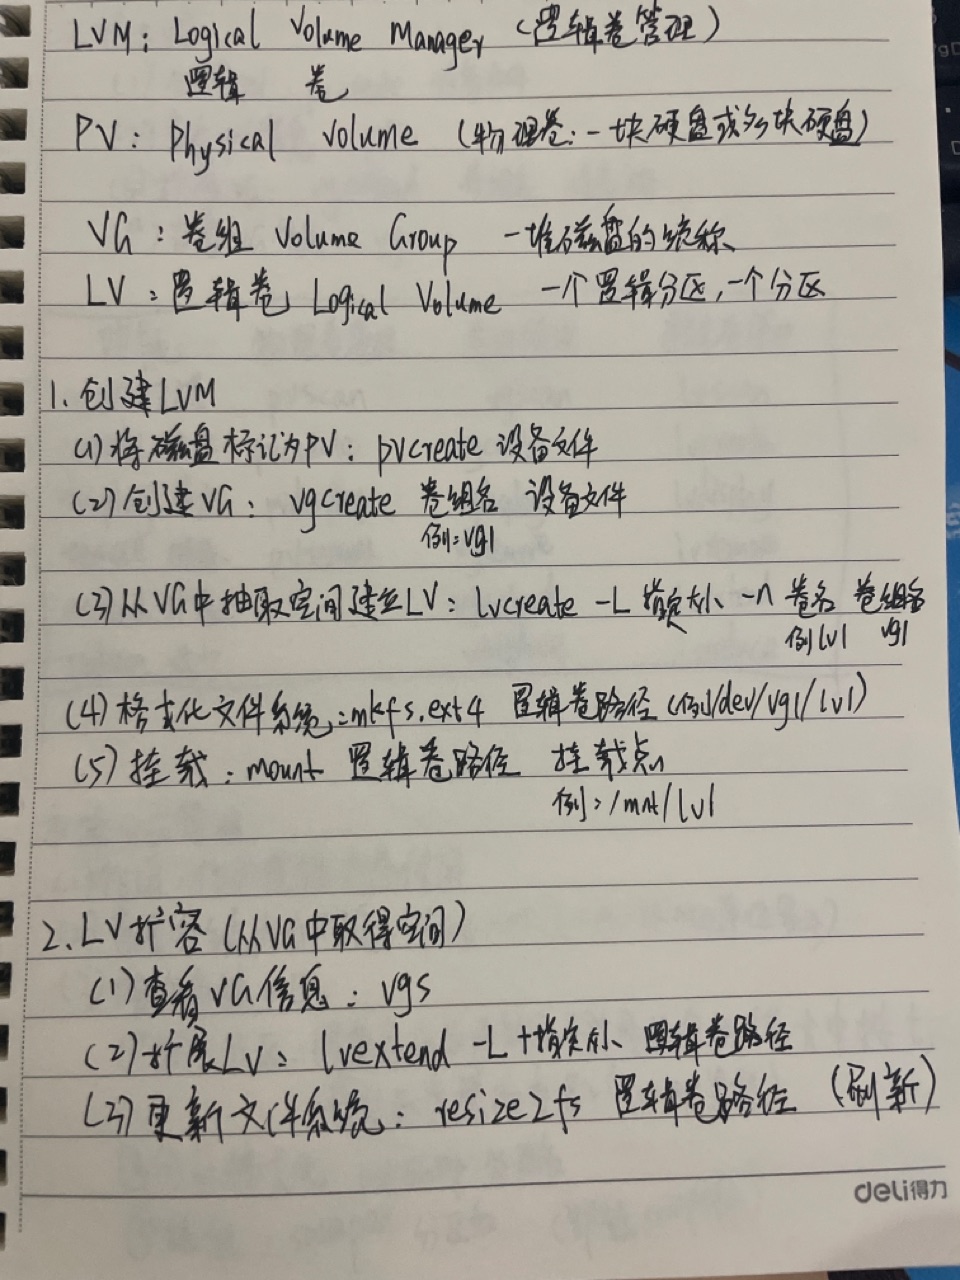 LVM: Logical Volume Manager (逻辑卷管理)
逻辑 卷
PV: Physical volume (物理卷: 一块硬盘或多块硬盘)
VG: 卷组 Volume Group 一堆磁盘的统称
LV: 逻辑卷 Logical Volume 一个逻辑分区,一个分区
1. 创建LVM
(1) 将磁盘标记为PV: pvcreate 设备文件
(2) 创建VG: vgcreate 卷组名 设备文件
例: vg1
(3) 从VG中抽取空间建立LV: lvcreate -L 指定大小 -n 卷名 卷组名
例 lv1 vg1
(4) 格式化文件系统: mkfs.ext4 逻辑卷路径 (例/dev/vg1/lv1)
(5) 挂载: mount 逻辑卷路径 挂载点
例: /mnt/lv1
2. LV扩容 (从VG中取得空间)
(1) 查看VG信息: vgs
(2) 扩展LV: lvextend -L +指定大小 逻辑卷路径
(3) 更新文件系统: resize2fs 逻辑卷路径 (刷新)
deli得力